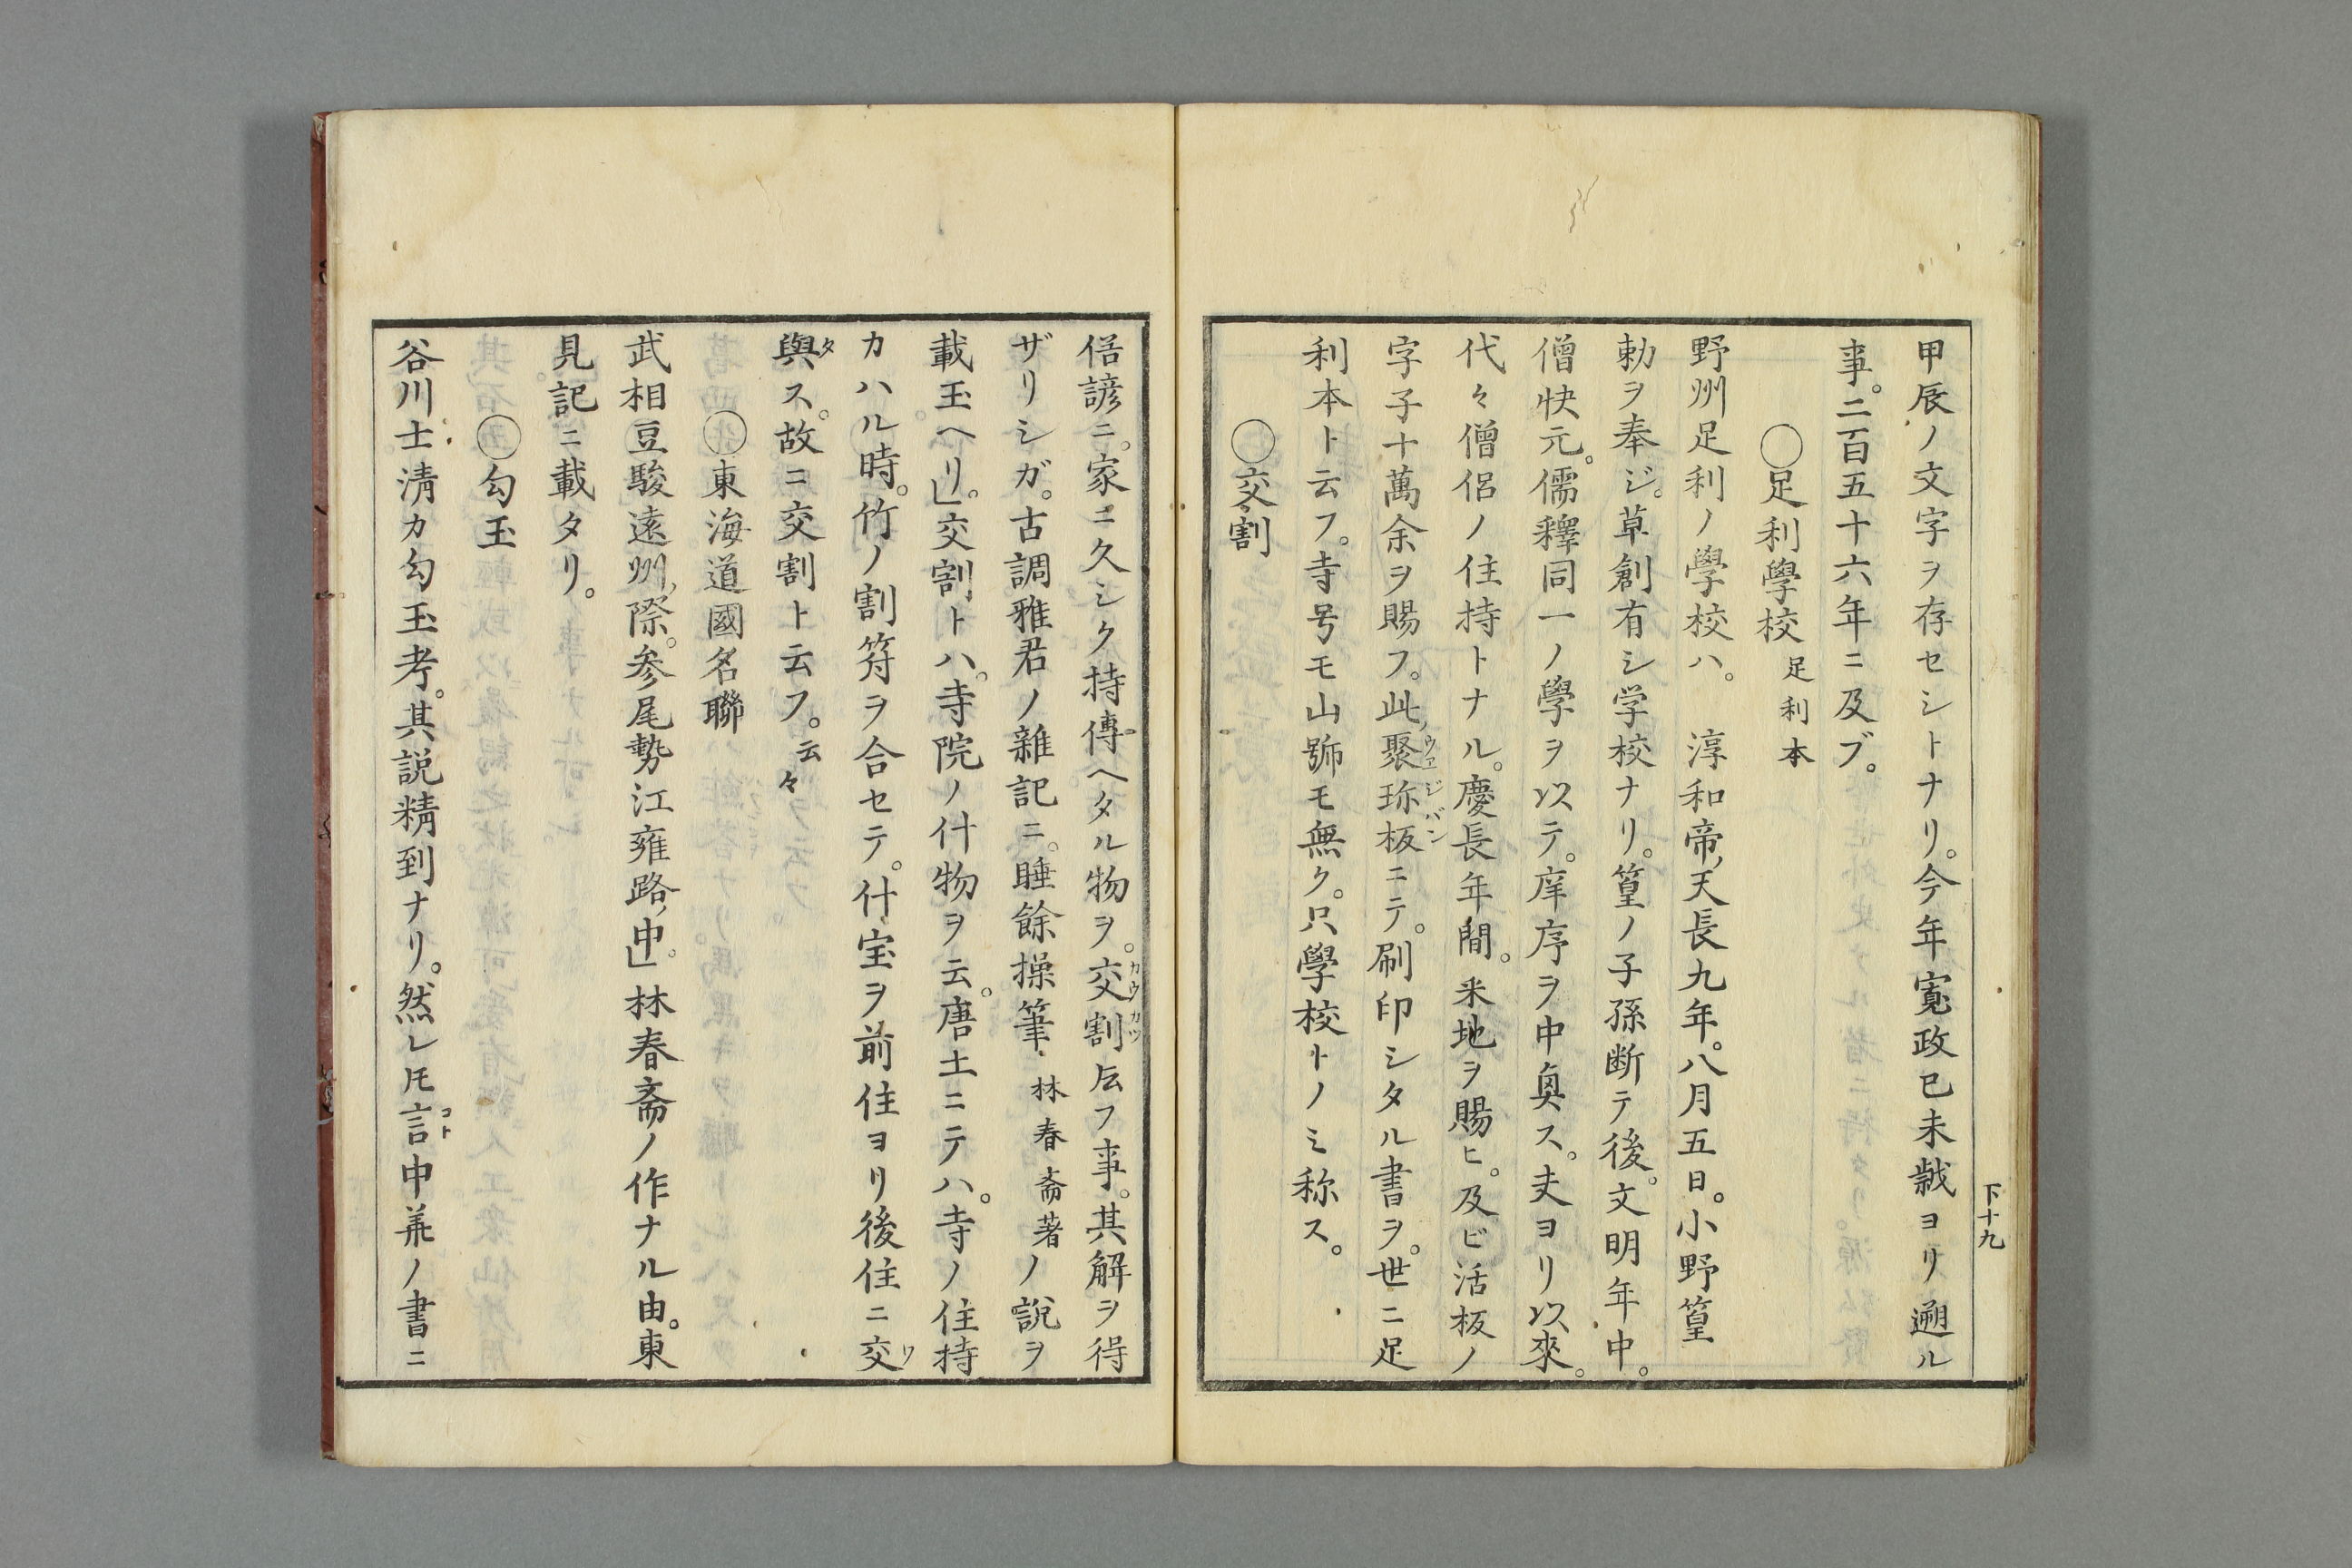 甲辰ノ文字ヲ存セシトナリ。今年寛政已未歳ヨリ遡ル
事。二百五十六年ニ及ブ。
○足利學校 足利本
野州足利ノ學校ハ。 淳和帝、天長九年。八月五日。小野篁
勅ヲ奉ジ。草創有シ学校ナリ。篁ノ子孫断テ後。文明年中。
僧快元。儒釋同一ノ學ヲ以テ。庠序ヲ中興ス。夫ヨリ以來。
代々僧侶ノ住持トナル。慶長年間。釆地ヲ賜ヒ。及ビ活板ノ
字子十萬余ヲ賜フ。此、聚珎板ウヱジバンニテ。刷印シタル書ヲ。世ニ足
利本ト云フ。寺号モ山號モ無ク。只學校トノミ称ス。
○交割
下十九
俗諺ニ。家ニ久シク持傳ヘタル物ヲ。交割カウカツト云フ事。其解ヲ得
ザリシガ。古調雅君ノ雜記ニ。睡餘操筆 林春斎著ノ説ヲ
載玉ヘリ。」交割トハ。寺院ノ什物ヲ云。唐土ニテハ。寺ノ住持
カハル時。竹ノ割符ヲ合セテ。什宝ヲ前住ヨリ後住ニ交ワ
與タス。故ニ交割ト云フ。云々
○東海道國名聯
武相豆駿遠州、際。参尾勢江雍路、中。」林春斎ノ作ナル由。東
見記ニ載タリ。
○勾玉
谷川士淸カ勾玉考。其説精到ナリ。然レ𪜈言コト中華ノ書ニ